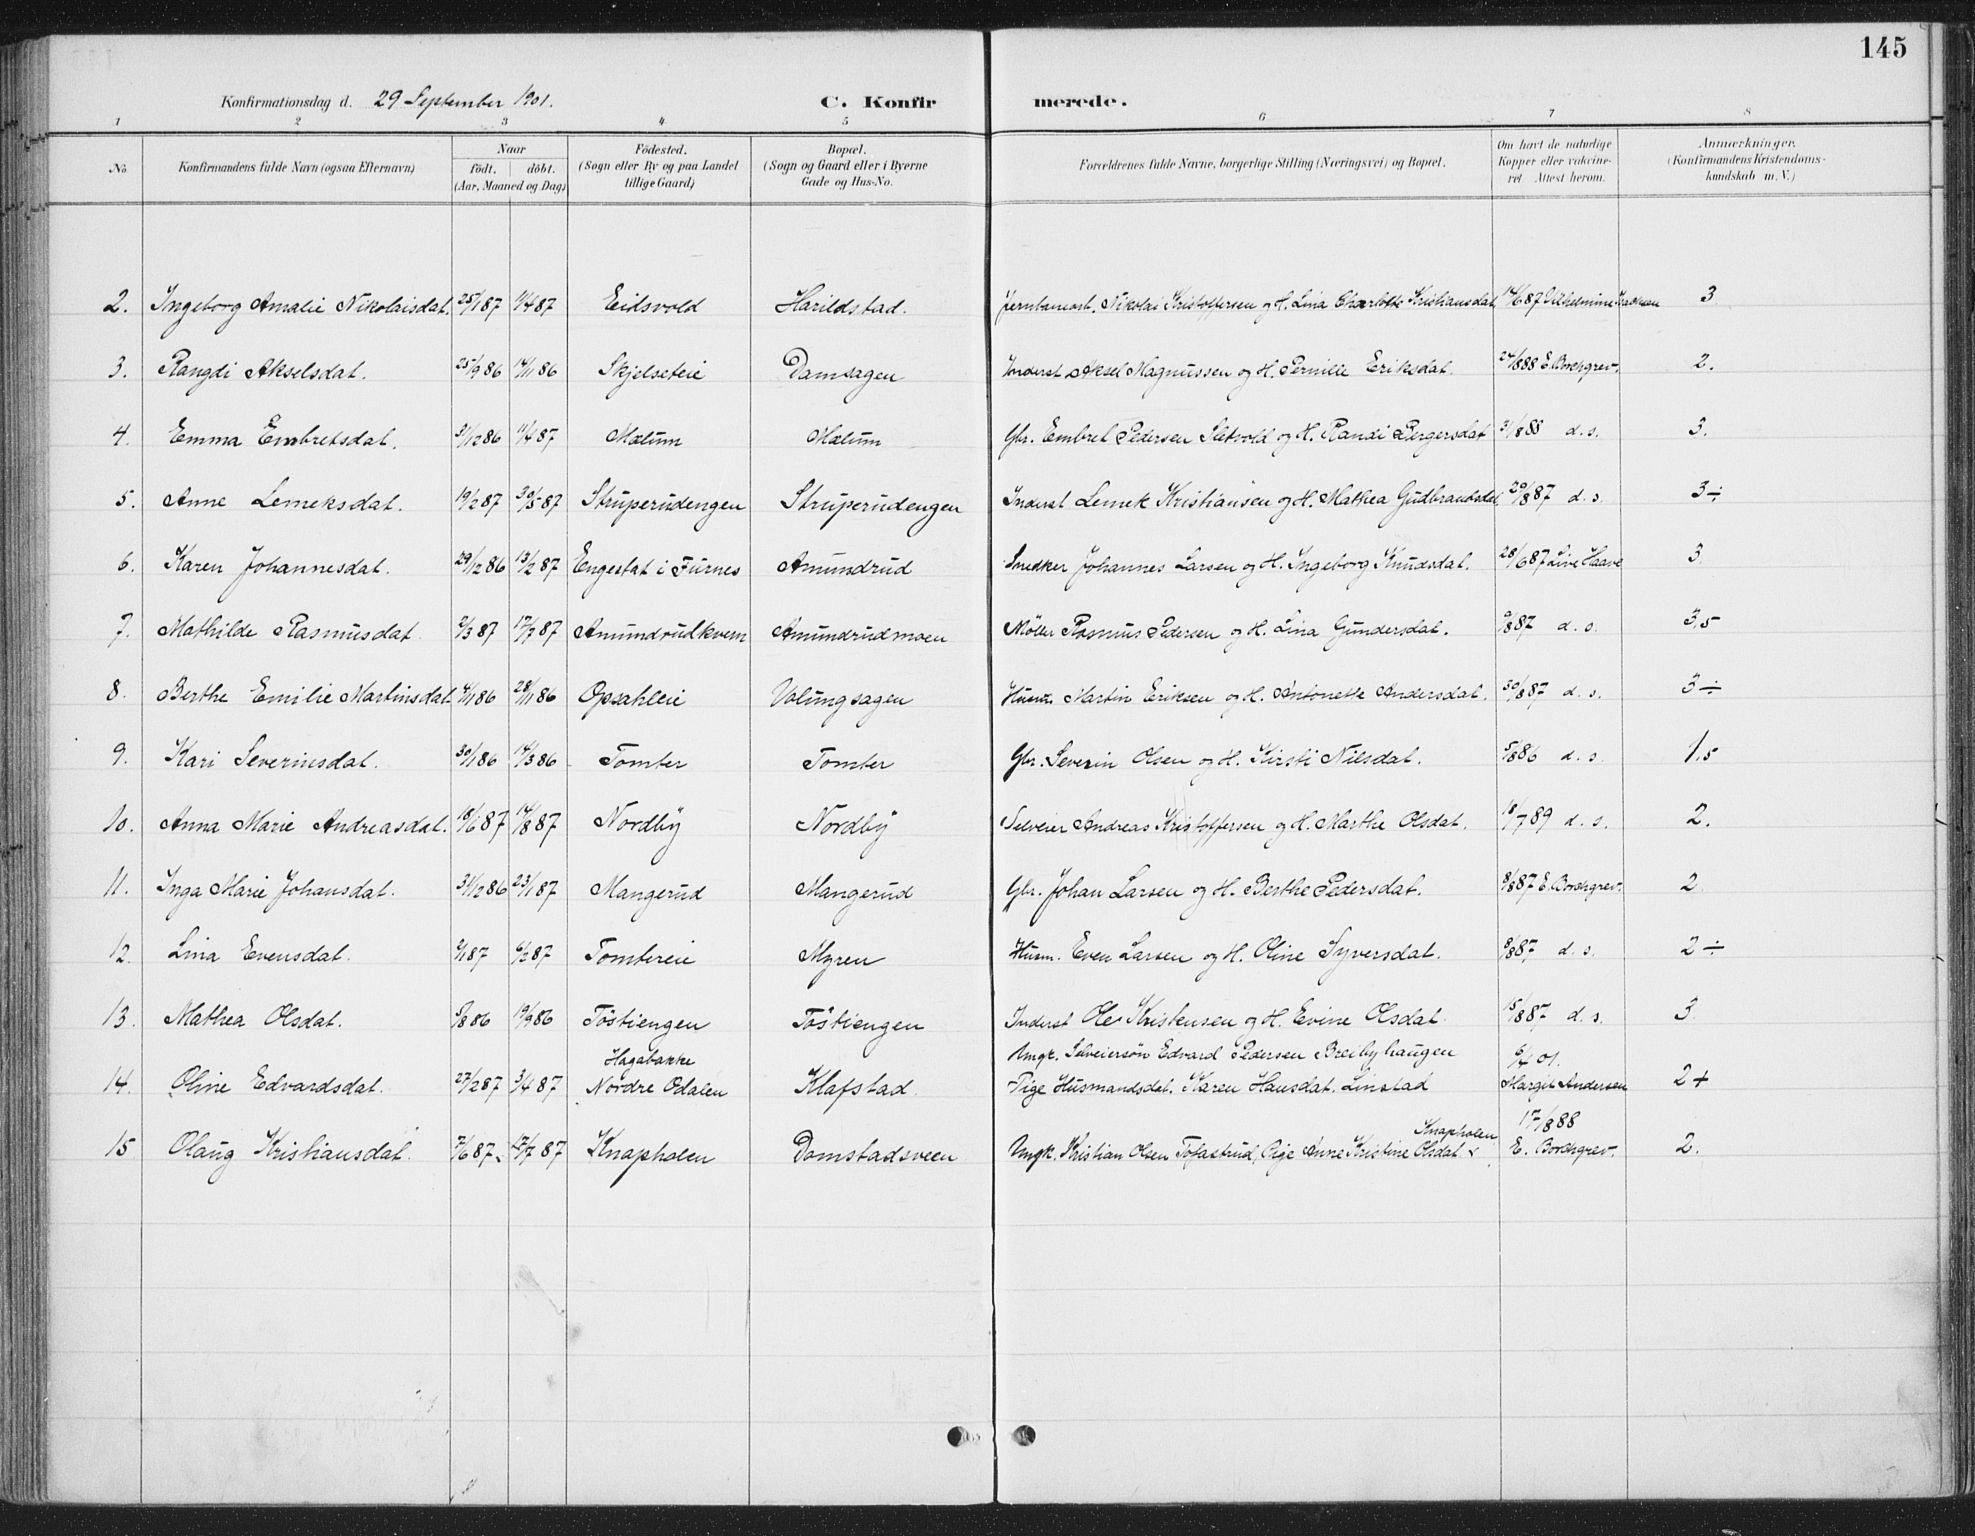 145
Konfirmationsdag d. 29 September 1901.
C. Konfirmerede.
1 2 3 4 5 6 7 8
No. Konfirmandens fulde Navn (ogsaa Efternavn) Naar födt. döbt. (Aar, Maaned og Dag) Födested. (Sogn eller By og paa Landet tillige Gaard) Bopæl. (Sogn og Gaard eller i Byerne Gade og Hus-No.) Forældrenes fulde Navne, borgerlige Stilling (Næringsvei) og Bopæl. Om havt de naturlige Kopper eller vakcineret. Attest herom. Anmærkninger. (Konfirmandens Kristendomskundskab m. V.)
2. Ingeborg Amalie Nikolaisdat. 25/1 87 Eidsvold Harildstad. Nikolai Kristoffersen og H. Lina Charlotte Kristiansdat. 3
3. Rangdi Akselsdat. 25/9 86 14/11 86 Skjelseteie Damsagen Inderst Aksel Magnussen og H. Pernille Eriksdat. 24/8 88 E. Borchgrev. 2.
4. Emma Embretsdat. 3/12 86 11/4 87 Mælum Mælum Gbr. Embret Pedersen Sletvold og H. Randi Pergersdat 31/8 88 d. s. 3.
5. Anne Lemeksdat. 19/2 87 30/5 87 Struperudengen Struperudengen Inderst Lemek Kristiansen og H. Mathea Gudbrandsdat. 20/8 87 d. s. 3÷
6. Karen Johannesdat. 29/12 86 13/2 87 Engestat i Furnes Amundrud Snedker Johannes Larsen og H. Ingeborg Knudsdat. 28/6 87 Live Haave 3
7. Mathilde Rasmusdat 2/3 87 17/7 87 Amundrudkvern Amundrudmoen Møller Rasmus Pedersen og H. Lina Gundersdat. 2/8 87 d. s. 3,5
8. Berthe Emilie Martinsdat 4/11 86 28/11 86 Opsahleie Volungsagen Husm. Martin Eriksen og H. Antonette Andersdat. 30/8 87 d. s. 3÷
9. Kari Severinsdat. 30/1 86 14/3 86 Tomter Tomter Gbr. Severin Olsen og H. Kirsti Nilsdat. 5/8 86 d. s. 1,5
10. Anna Marie Andreasdat. 18/6 87 14/8 87 Nordby Nordby Selveier Andreas Kristoffersen og H. Marthe Olsdat. 18/7 89 d. s. 2.
11. Inga Marie Johansdat. 31/12 86 23/1 87 Mangerud Mangerud Gbr. Johan Larsen og H. Berthe Pedersdat. 8/8 87 E. Borchgrev. 2
12. Lina Evensdat. 9/1 87 6/2 87 Tomtereie Myren Husm. Even Larsen og H. Oline Syversdat. 8/8 87 d. s. 2÷
13. Mathea Olsdat. 5/8 86 19/9 86 Töstiengen Töstiengen Inderst Ole Kristensen og H. Evine Olsdat. 15/8 87 d. s. 3
14. Oline Edvardsdat. 27/2 87 3/4 87 Hagabakke Nordre Odalen Klafstad. Ungk. Selveiersön Edvard Pedersen Breibyhaugen
Pige Husmandsdat. Karen Hansdat. Linstad 6/4 01. Margit Andersen 2+
15 Olaug Kristiansdat. 7/6 87 17/7 87 Knapholen Domstadsveen Ungk. Kristian Olsen Tofastrud, Pige Anne Kristine Olsdat. Knapholen 17/8 88 E. Borchgrev. 2.